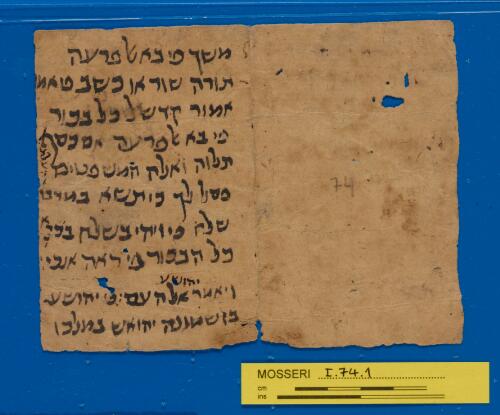 משך פי בא אל פרעה
תורה שור או כשב פי אמו
אמור קדש לי כל בכור
פי בא אל פרעה אם כסף
תלוה ואלה המשפטים
פסל לך כי תשא במדבר
שלח פי ויהי בשלח
כל הבכור פי ראה אנכי
יהושע
ויאמר אל העם פי יהושע
בן שמונה יהואש במלכו
74
MOSSERI I.74.1
cm
ins